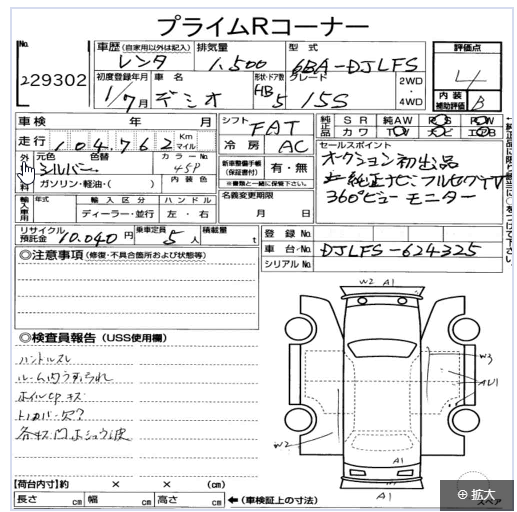 プライムRコーナー
No.
229302
車歴 (自家用以外は記入) 排気量 型式
レンタ 1,500 6BA-DJLFS
初度登録年月 車名 形状・ドア数 グレード 2WD
1/7月 デミオ HB 5 15S ・4WD
評価点
4
内装補助評価 B
車検 年 月 シフト FAT
純正品 SR 純AW PS PW
カワ TV ナビ エアB
走行 104,762 Km マイル 冷房 AC
外 元色 色替 カラーNo.
シルバー 45P
料 ガソリン・軽油・( ) 内装色
新車整備手帳(保証書付) 有・無
※書類と一緒に保管下さい。
セールスポイント
オークション初出品
純正ナビ フルセグTV
360°ビューモニター
輸入車用 年式 輸入区分 ハンドル
ディーラー・並行 左・右
名義変更期限
月 日
リサイクル預託金 10.040円 乗車定員 5人 積載量 t
登録No.
車台No. DJLFS-624325
シリアルNo.
◎注意事項 (修復・不具合箇所および状態等)
◎検査員報告 (USS使用欄)
ハンドルスレ
ルーム内うすよごれ
ホイルcpキズ
トノカバー欠?
W2 A1
W3
AU1
W2
A1
A1
スペア
【荷台内寸】約 × × (cm)
長さ cm 幅 cm 高さ cm ←(車検証上の寸法)
拡大